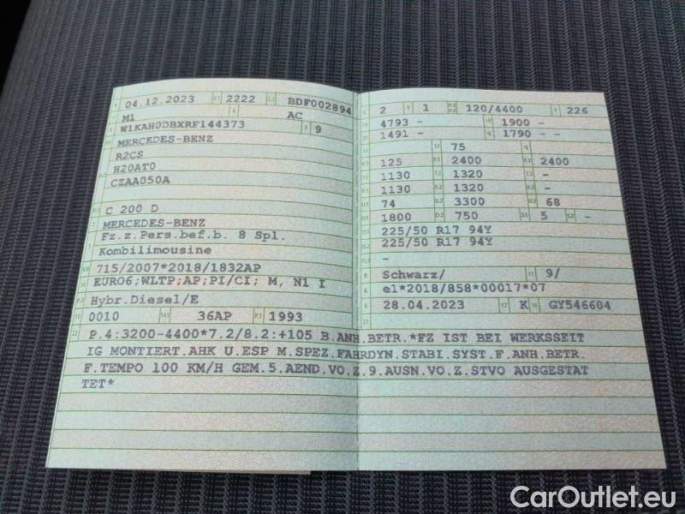 04.12.2023 2222 BDF002894
M1 AC
W1KAH0DBXRF144373 9
MERCEDES-BENZ
R2CS
H20AT0
CZAA050A
C 200 D
MERCEDES-BENZ
Fz.z.Pers.bef.b. 8 Spl.
Kombilimousine
715/2007*2018/1832AP
EURO6;WLTP;AP;PI/CI; M, N1 I
Hybr.Diesel/E
0010 36AP 1993
2 1 120/4400 226
4793 - 1900 -
1491 - 1790 --
75
125 2400 2400
1130 1320 -
1130 1320 -
74 3300 68
1800 750 5 -
225/50 R17 94Y
225/50 R17 94Y
-
Schwarz/ 9/
e1*2018/858*00017*07
28.04.2023 K GY546604
P.4:3200-4400*7.2/8.2:+105 B.ANH.BETR.*FZ IST BEI WERKSSEIT
IG MONTIERT.AHK U.ESP M.SPEZ.FAHRDYN.STABI.SYST.F.ANH.BETR.
F.TEMPO 100 KM/H GEM.5.AEND.VO.Z.9.AUSN.VO.Z.STVO AUSGESTAT
TET*
CarOutlet.eu